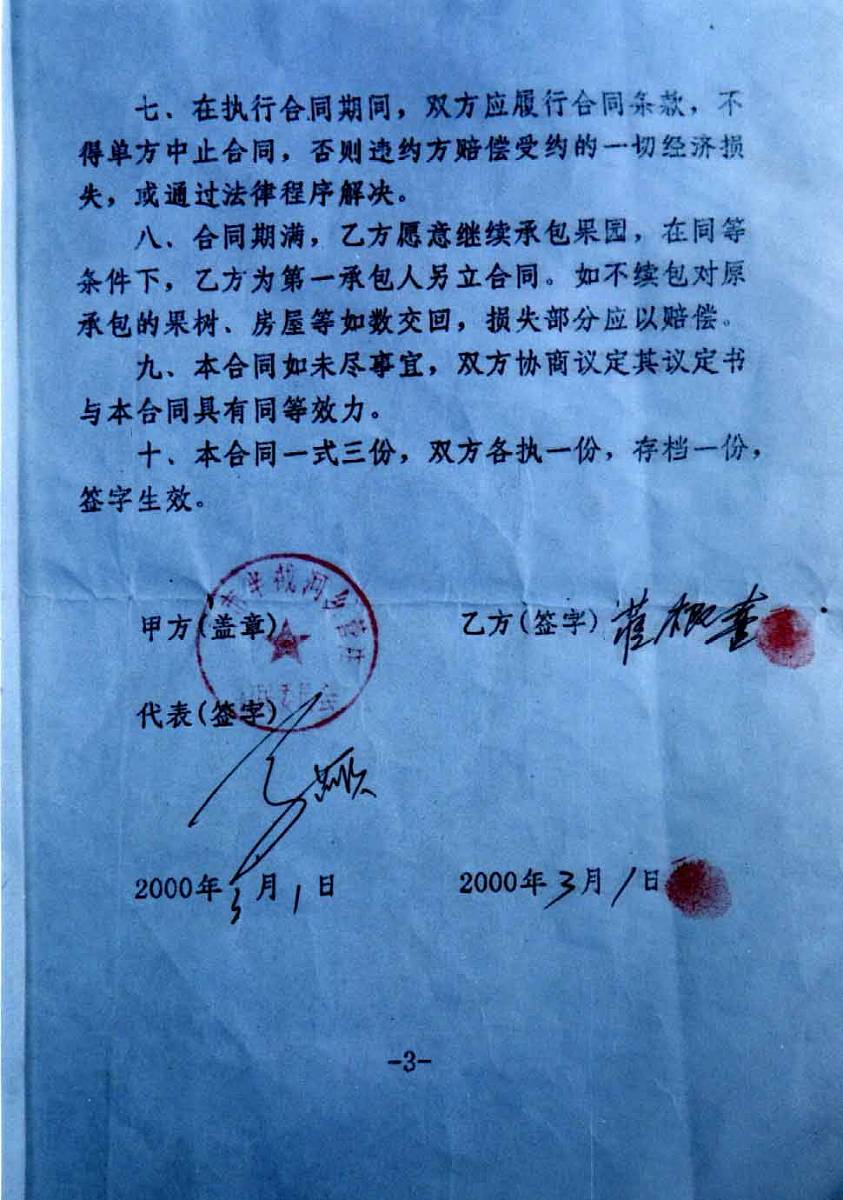 七、在执行合同期间，双方应履行合同条款，不
得单方中止合同，否则违约方赔偿受约的一切经济损
失，或通过法律程序解决。
八、合同期满，乙方愿意继续承包果园，在同等
条件下，乙方为第一承包人另立合同。如不续包对原
承包的果树、房屋等如数交回，损失部分应以赔偿。
九、本合同如未尽事宜，双方协商议定其议定书
与本合同具有同等效力。
十、本合同一式三份，双方各执一份，存档一份，
签字生效。
半截河乡管理
甲方(盖章)
乙方(签字)
代表(签字)
2000年3月1日
2000年3月1日
-3-